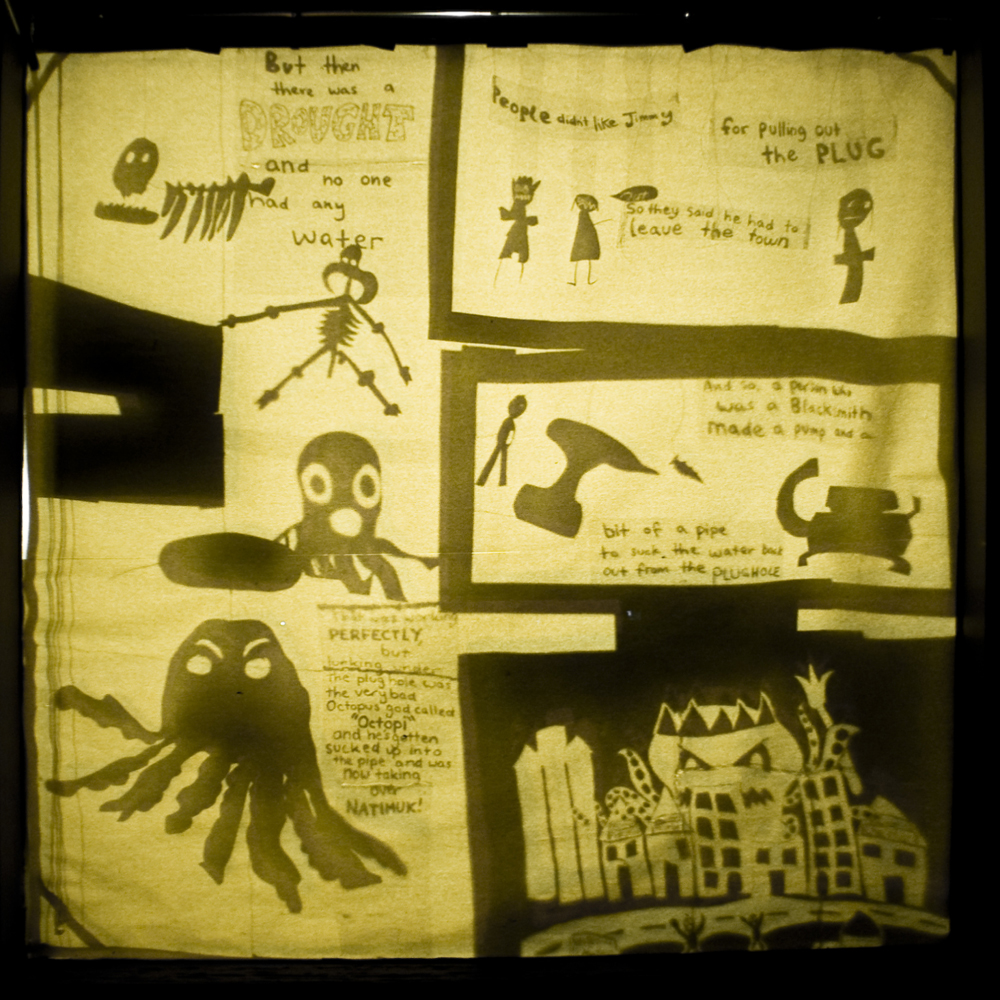 But then
there was a
DROUGHT
and
no one
had any
water
People didn't like Jimmy
for pulling out
the PLUG
So they said he had to
leave the town
And so, a person who
was a Blacksmith
made a pump and a
bit of a pipe
to suck the water back
out from the PLUGHOLE
That was working
PERFECTLY,
but
lurking under
The plughole was
the very bad
Octopus god called
"Octopi"
and he's gotten
sucked up into
the pipe and was
now taking
over
NATIMUK!